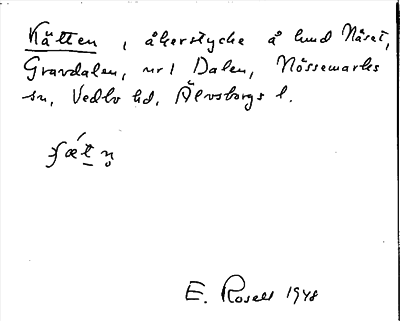 Kätten, åkerstycke å hmd Näset,
Gravdalen, nr 1 Dalen, Nössemarks
sn, Vedbo hd, Älvsborgs l.
E. Rosell 1948